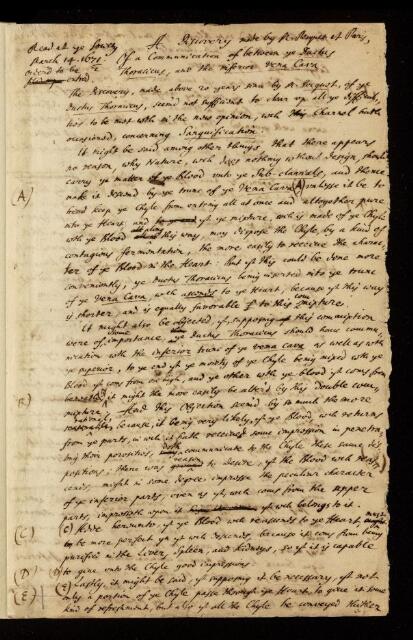 Read at ye Society
March 14. 1671.
orderd to be
entred.
A Discovery made by Mr Pequet at Paris,
Of a Communication of between ye Ductus
Thoracicus, and the inferior Vena Cava.
The Discovery, made above 20 years since by Mr Pequet, of ye
Ductus Thoracicus, seem'd not sufficient to clear up all ye difficul,
ties to be met with in the new opinion, wch this Channel hath
occasioned, concerning Sanguification.
It might be said among other things, That there appears
no reason, why Nature, wch does nothing without design, should
carry ye matter of ye Blood into ye Subclavials, and thence
(A)
make it descend by ye trunc of ye Vena Cava (A) unlesse it be to
keep ye Chyle from entring all at once and altogether pure
into ye Heart, and yt ye mixture, wch is made of ye Chyle
with ye Blood this way, may dispose the Chyle, by a kind of
contagious fermentation, the more easily to receive the charac,
ter of ye Blood in the Heart. But yt this could be done more
conveniently, ye Ductus Thoracicus being inserted into ye trunc
of ye Vena Cava, wch ascends to ye Heart, because yt this way
is shorter, and is equally favorable to this mixture.
It might also be objected, yt supposing this commixtion
were of some importance, ye Ductus Thoracicus should have commu,
nication with the inferior trunc of ye vena cava as well as with
ye superior, to ye end yt ye moiety of ye Chyle being mixed with ye
Blood yt coms from on high, and ye other with ye blood yt coms from
(B)
beneath, it might the more easily be alter'd by this double com,
mixture. And this Objection seem'd by so much the more
reasonable, because, it being very likely, yt ye Blood wch returns
from ye parts, in wch it hath received some impression in penetra,
ting their porosities, doth communicate to the Chyle these same dis,
positions; there was reason to desire, yt the Blood wch
cends, might in some degree impresse the peculiar character
of ye inferior parts, even as yt, wch coms from the upper
parts, imprinteth upon it yt wch belongs to it.
(C)
(C) Adde hereunto, yt ye Blood wch reascends to ye Heart, must
be more perfect yn yt wch descends, because it coms from being
purified in the Liver, Spleen, and Kidneys, so yt it is capable
(D)
(D) to give unto the Chyle good impressions.
(E)
(E) Lastly, it might be said, yt supposing it be necessary, yt not
only a portion of ye Chyle passe through ye Heart, to give it some
kind of refreshment, but also yt all the Chyle be conveyed thither